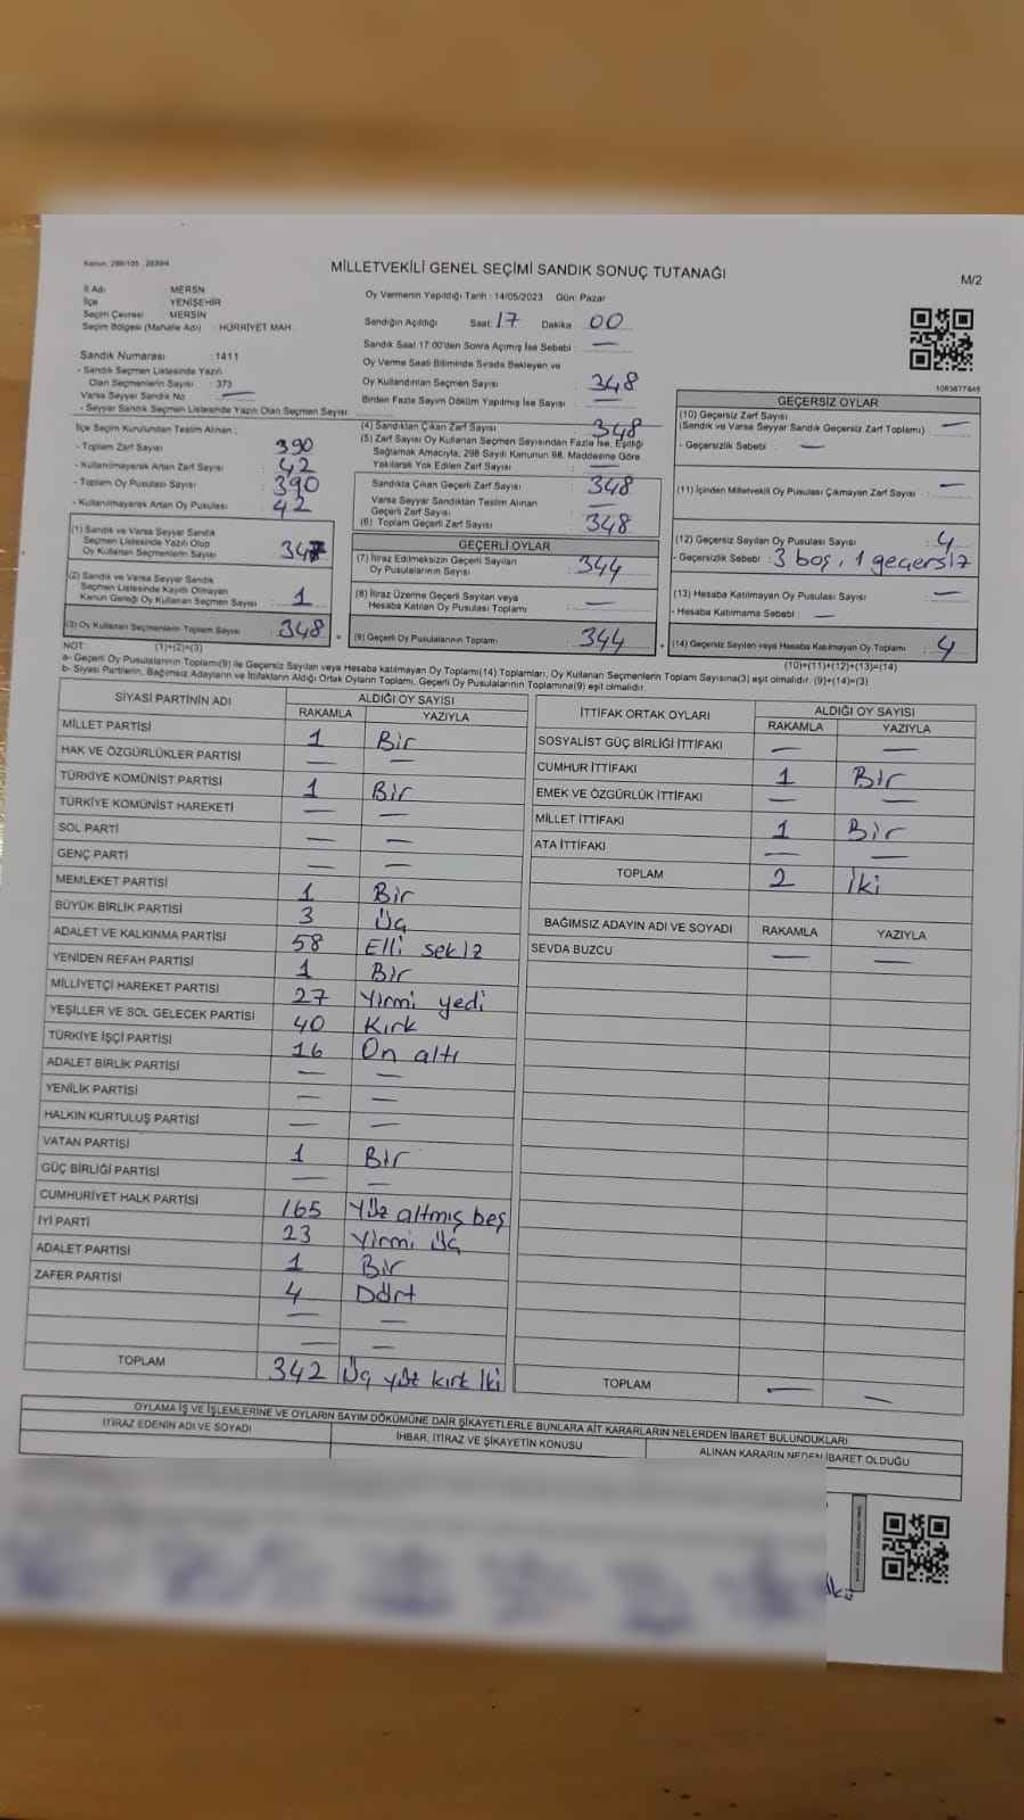 Kanun: 298/105 2839/4
MİLLETVEKİLİ GENEL SEÇİMİ SANDIK SONUÇ TUTANAĞI
M/2
İl Adı MERSN
İlçe YENİŞEHİR
Seçim Çevresi MERSİN
Seçim Bölgesi (Mahalle Adı) : HÜRRİYET MAH.
Oy Vermenin Yapıldığı Tarih : 14/05/2023 Gün: Pazar
Sandığın Açıldığı Saat: 17 Dakika 00
Sandık Saat 17:00'den Sonra Açılmış İse Sebebi : —
Oy Verme Saati Bitiminde Sırada Bekleyen ve
Oy Kullandırılan Seçmen Sayısı 348
Birden Fazla Sayım Döküm Yapılmış İse Sayısı —
Sandık Numarası : 1411
- Sandık Seçmen Listesinde Yazılı
Olan Seçmenlerin Sayısı : 373
Varsa Seyyar Sandık No —
- Seyyar Sandık Seçmen Listesinde Yazılı Olan Seçmen Sayısı
İlçe Seçim Kurulundan Teslim Alınan :
- Toplam Zarf Sayısı : 390
- Kullanılmayarak Artan Zarf Sayısı : 42
- Toplam Oy Pusulası Sayısı : 390
- Kullanılmayarak Artan Oy Pusulası : 42
(1) Sandık ve Varsa Seyyar Sandık
Seçmen Listesinde Yazılı Olup
Oy Kullanan Seçmenlerin Sayısı : 347
(2) Sandık ve Varsa Seyyar Sandık
Seçmen Listesinde Kayıtlı Olmayan
Kanun Gereği Oy Kullanan Seçmen Sayısı 1
(3) Oy Kullanan Seçmenlerin Toplam Sayısı 348
(1)+(2)=(3)
(4) Sandıktan Çıkan Zarf Sayısı : 348
(5) Zarf Sayısı Oy Kullanan Seçmen Sayısından Fazla İse, Eşitliği
Sağlamak Amacıyla, 298 Sayılı Kanunun 98. Maddesine Göre
Yakılarak Yok Edilen Zarf Sayısı —
Sandıkta Çıkan Geçerli Zarf Sayısı : 348
Varsa Seyyar Sandıktan Teslim Alınan
Geçerli Zarf Sayısı —
(6) Toplam Geçerli Zarf Sayısı : 348
GEÇERLİ OYLAR
(7) İtiraz Edilmeksizin Geçerli Sayılan
Oy Pusulalarının Sayısı : 344
(8) İtiraz Üzerine Geçerli Sayılan veya
Hesaba Katılan Oy Pusulası Toplamı —
(9) Geçerli Oy Pusulalarının Toplamı 344
1083677845
GEÇERSİZ OYLAR
(10) Geçersiz Zarf Sayısı
(Sandık ve Varsa Seyyar Sandık Geçersiz Zarf Toplamı) —
- Geçersizlik Sebebi : —
(11) İçinden Milletvekili Oy Pusulası Çıkmayan Zarf Sayısı —
(12) Geçersiz Sayılan Oy Pusulası Sayısı : 4
- Geçersizlik Sebebi : 3 boş, 1 geçersiz
(13) Hesaba Katılmayan Oy Pusulası Sayısı —
- Hesaba Katılmama Sebebi : —
(14) Geçersiz Sayılan veya Hesaba Katılmayan Oy Toplamı 4
(10)+(11)+(12)+(13)=(14)
NOT
a- Geçerli Oy Pusulalarının Toplamı(9) ile Geçersiz Sayılan veya Hesaba katılmayan Oy Toplamı(14) Toplamları, Oy Kullanan Seçmenlerin Toplam Sayısına(3) eşit olmalıdır. (9)+(14)=(3)
b- Siyasi Partilerin, Bağımsız Adayların ve İttifakların Aldığı Ortak Oyların Toplamı, Geçerli Oy Pusulalarının Toplamına(9) eşit olmalıdır.
SİYASİ PARTİNİN ADI ALDIĞI OY SAYISI
RAKAMLA YAZIYLA
MİLLET PARTİSİ 1 Bir
HAK VE ÖZGÜRLÜKLER PARTİSİ — —
TÜRKİYE KOMÜNİST PARTİSİ 1 Bir
TÜRKİYE KOMÜNİST HAREKETİ — —
SOL PARTİ — —
GENÇ PARTİ — —
MEMLEKET PARTİSİ 1 Bir
BÜYÜK BİRLİK PARTİSİ 3 Üç
ADALET VE KALKINMA PARTİSİ 58 Elli sekiz
YENİDEN REFAH PARTİSİ 1 Bir
MİLLİYETÇİ HAREKET PARTİSİ 27 Yirmi yedi
YEŞİLLER VE SOL GELECEK PARTİSİ 40 Kırk
TÜRKİYE İŞÇİ PARTİSİ 16 On altı
ADALET BİRLİK PARTİSİ — —
YENİLİK PARTİSİ — —
HALKIN KURTULUŞ PARTİSİ — —
VATAN PARTİSİ 1 Bir
GÜÇ BİRLİĞİ PARTİSİ — —
CUMHURİYET HALK PARTİSİ 165 Yüz altmış beş
İYİ PARTİ 23 Yirmi üç
ADALET PARTİSİ 1 Bir
ZAFER PARTİSİ 4 Dört
— —
— —
TOPLAM 342 Üç yüz kırk İki
İTTİFAK ORTAK OYLARI ALDIĞI OY SAYISI
RAKAMLA YAZIYLA
SOSYALİST GÜÇ BİRLİĞİ İTTİFAKI — —
CUMHUR İTTİFAKI 1 Bir
EMEK VE ÖZGÜRLÜK İTTİFAKI — —
MİLLET İTTİFAKI 1 Bir
ATA İTTİFAKI — —
TOPLAM 2 İki
BAĞIMSIZ ADAYIN ADI VE SOYADI RAKAMLA YAZIYLA
SEVDA BUZCU — —
TOPLAM — —
OYLAMA İŞ VE İŞLEMLERİNE VE OYLARIN SAYIM DÖKÜMÜNE DAİR ŞİKAYETLERLE BUNLARA AİT KARARLARIN NELERDEN İBARET BULUNDUKLARI
İTİRAZ EDENİN ADI VE SOYADI İHBAR, İTİRAZ VE ŞİKAYETİN KONUSU ALINAN KARARIN NEDEN İBARET OLDUĞU